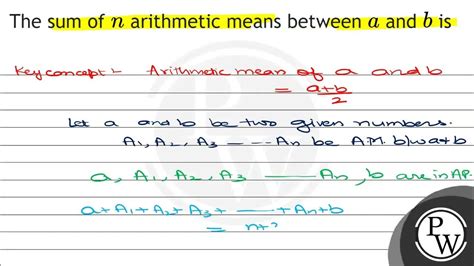 The sum of n arithmetic means between a and b is
Key concept :- Arithmetic mean of a and b
= a+b/2
Let a and b be two given numbers.
A₁, A₂, A₃ ---- An be A.M. b/w a & b
a, A₁, A₂, A₃ ---- An, b are in AP.
a+A₁+A₂+A₃+ ---- +An+b
= n+2
P
W